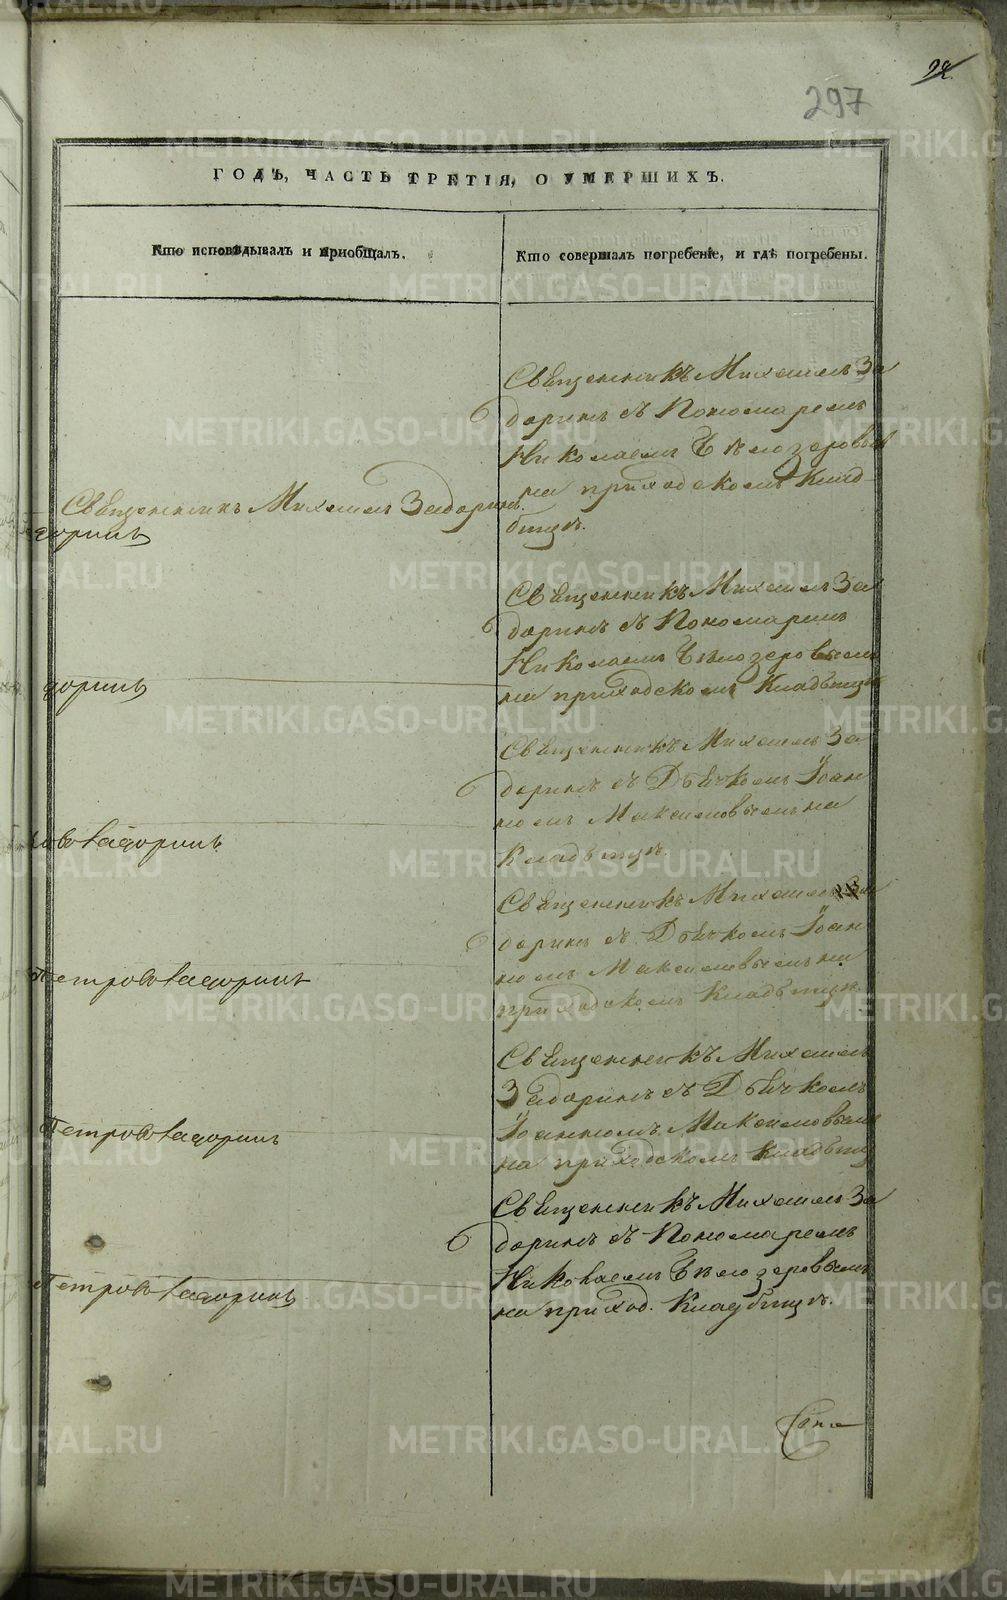 92.
297
ГОДЪ, ЧАСТЬ ТРЕТІЯ, О УМЕРШИХЪ.
Кто исповѣдывалъ и приобщалъ.
Кто совершалъ погребеніе, и гдѣ погребены.
Священникъ Михаилъ Задоринъ.
доринъ
доринъ
Задоринъ
Петровъ Задоринъ
Петровъ Задоринъ
Петровъ Задоринъ
Священникъ Михаилъ За
доринъ съ Пономаремъ
Николаемъ Бѣлозеровымъ
на приходскомъ клад-
бищѣ.
Священникъ Михаилъ За
доринъ съ Пономаремъ
Николаемъ Бѣлозеровымъ
на приходскомъ кладбищѣ
Священникъ Михаилъ За
доринъ съ Дьячкомъ Іоан
номъ Максимовымъ на
кладбищѣ.
Священникъ Михаилъ За
доринъ съ Дьячкомъ Іоан
номъ Максимовымъ на
приходскомъ кладбищѣ
Священникъ Михаилъ
Задоринъ съ Дьячкомъ
Іоанномъ Максимовымъ
на приходскомъ кладбищ
Священникъ Михаилъ За
доринъ съ Пономаремъ
Николаемъ Бѣлозеровымъ
на приход. кладбищѣ.
METRIKI.GASO-URAL.RU